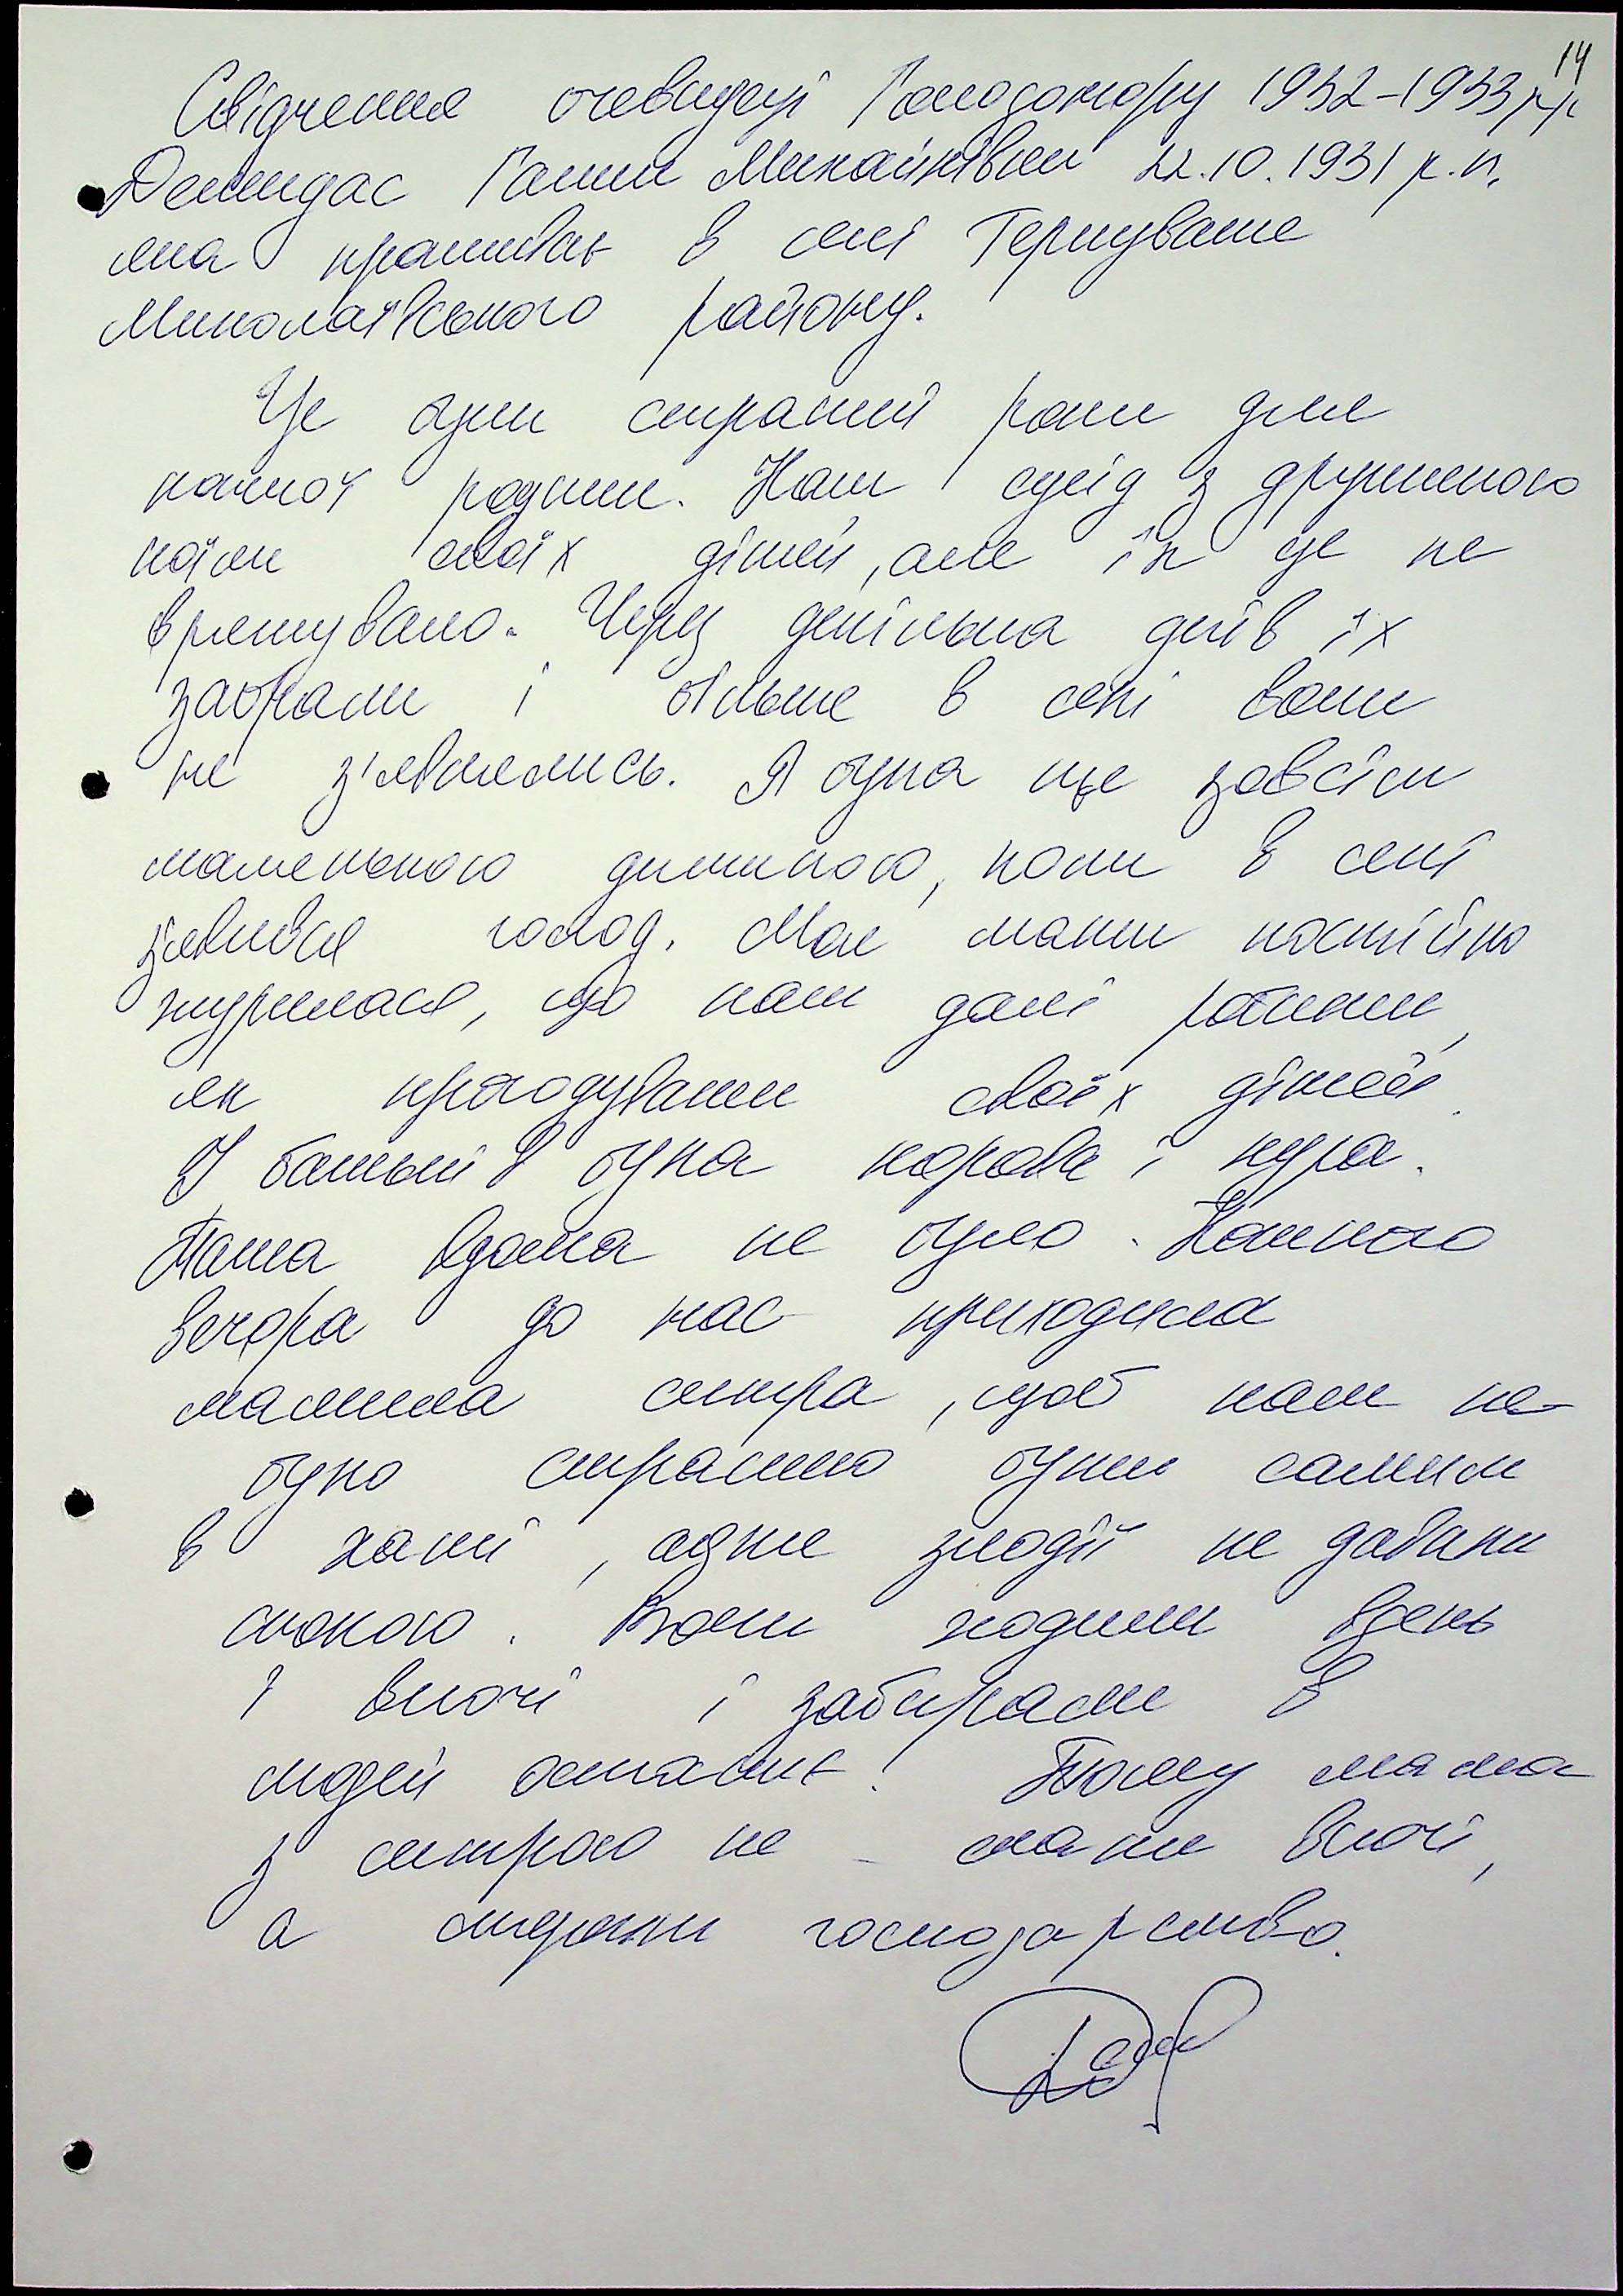 14
Свідчення очевидці Голодомору 1932-1933 рр
Ганни Михайлівни 22.10.1931 р.н.
яка проживає в селі Тернувате
Миколаївського району.
Це були страшні роки для
нашої родини. Наш сусід з дружиною
поїли своїх дітей, але їх це не
врятувало. Через декілька днів їх
забрали і більше в селі вони
не з'являлись. Я була ще зовсім
маленькою дитиною, коли в селі
з'явився голод. Моя мати постійно
журилася, що нам далі робити,
як прогодувати своїх дітей.
У батьків була корова і кура.
Тата вдома не було. Кожного
вечора до нас приходила
мамина сестра, щоб нам не
було страшно бути самим
в хаті, адже злодії не давали
спокою. Вони ходили вдень
і вночі і забирали в
людей останнє! Тому мама
з сестрою не спали вночі,
а стерегли господарство.